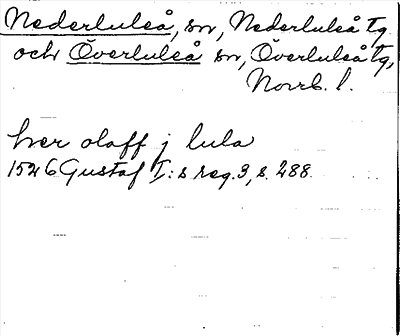 Nederluleå, sn, Nederluleå tg
och Överluleå sn, Överluleå tg,
Norrb. l.
her olaff j lula
1526 Gustaf I:s reg. 3, s. 288.